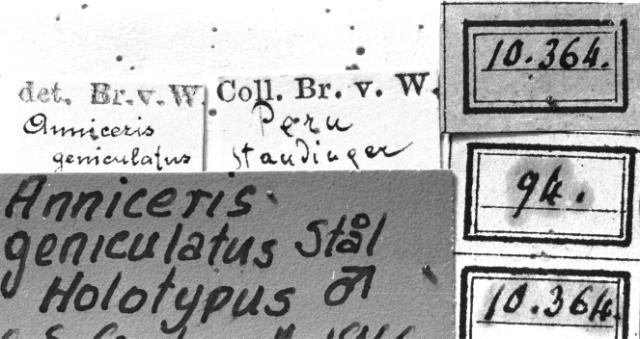 det. Br.v.W.
Anniceris
geniculatus
Coll. Br. v. W.
Peru
Staudinger
10.364.
94.
10.364.
Anniceris
geniculatus Stål
Holotypus ♂